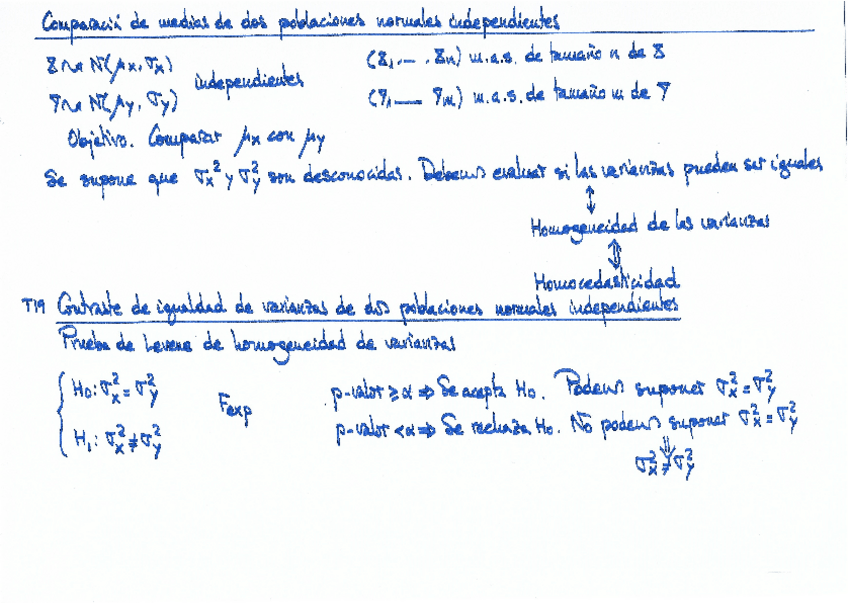 Comparación de medias de dos poblaciones normales independientes
X ~> N(μx, σx) independientes (X1, --- Xn) m.a.s. de tamaño n de X
Y ~> N(μy, σy) (Y1, --- Ym) m.a.s. de tamaño m de Y
Objetivo. Comparar μx con μy
Se supone que σx² y σy² son desconocidas. Debemos evaluar si las varianzas pueden ser iguales
↕
Homogeneidad de las varianzas
⇕
Homocedasticidad
T19 Contraste de igualdad de varianzas de dos poblaciones normales independientes
Prueba de Levene de homogeneidad de varianzas
{ H0: σx² = σy² Fexp p-valor ≥ α ⇒ Se acepta H0. Podemos suponer σx² = σy²
H1: σx² ≠ σy² p-valor < α ⇒ Se rechaza H0. No podemos suponer σx² = σy²
⇓
σx² ≠ σy²